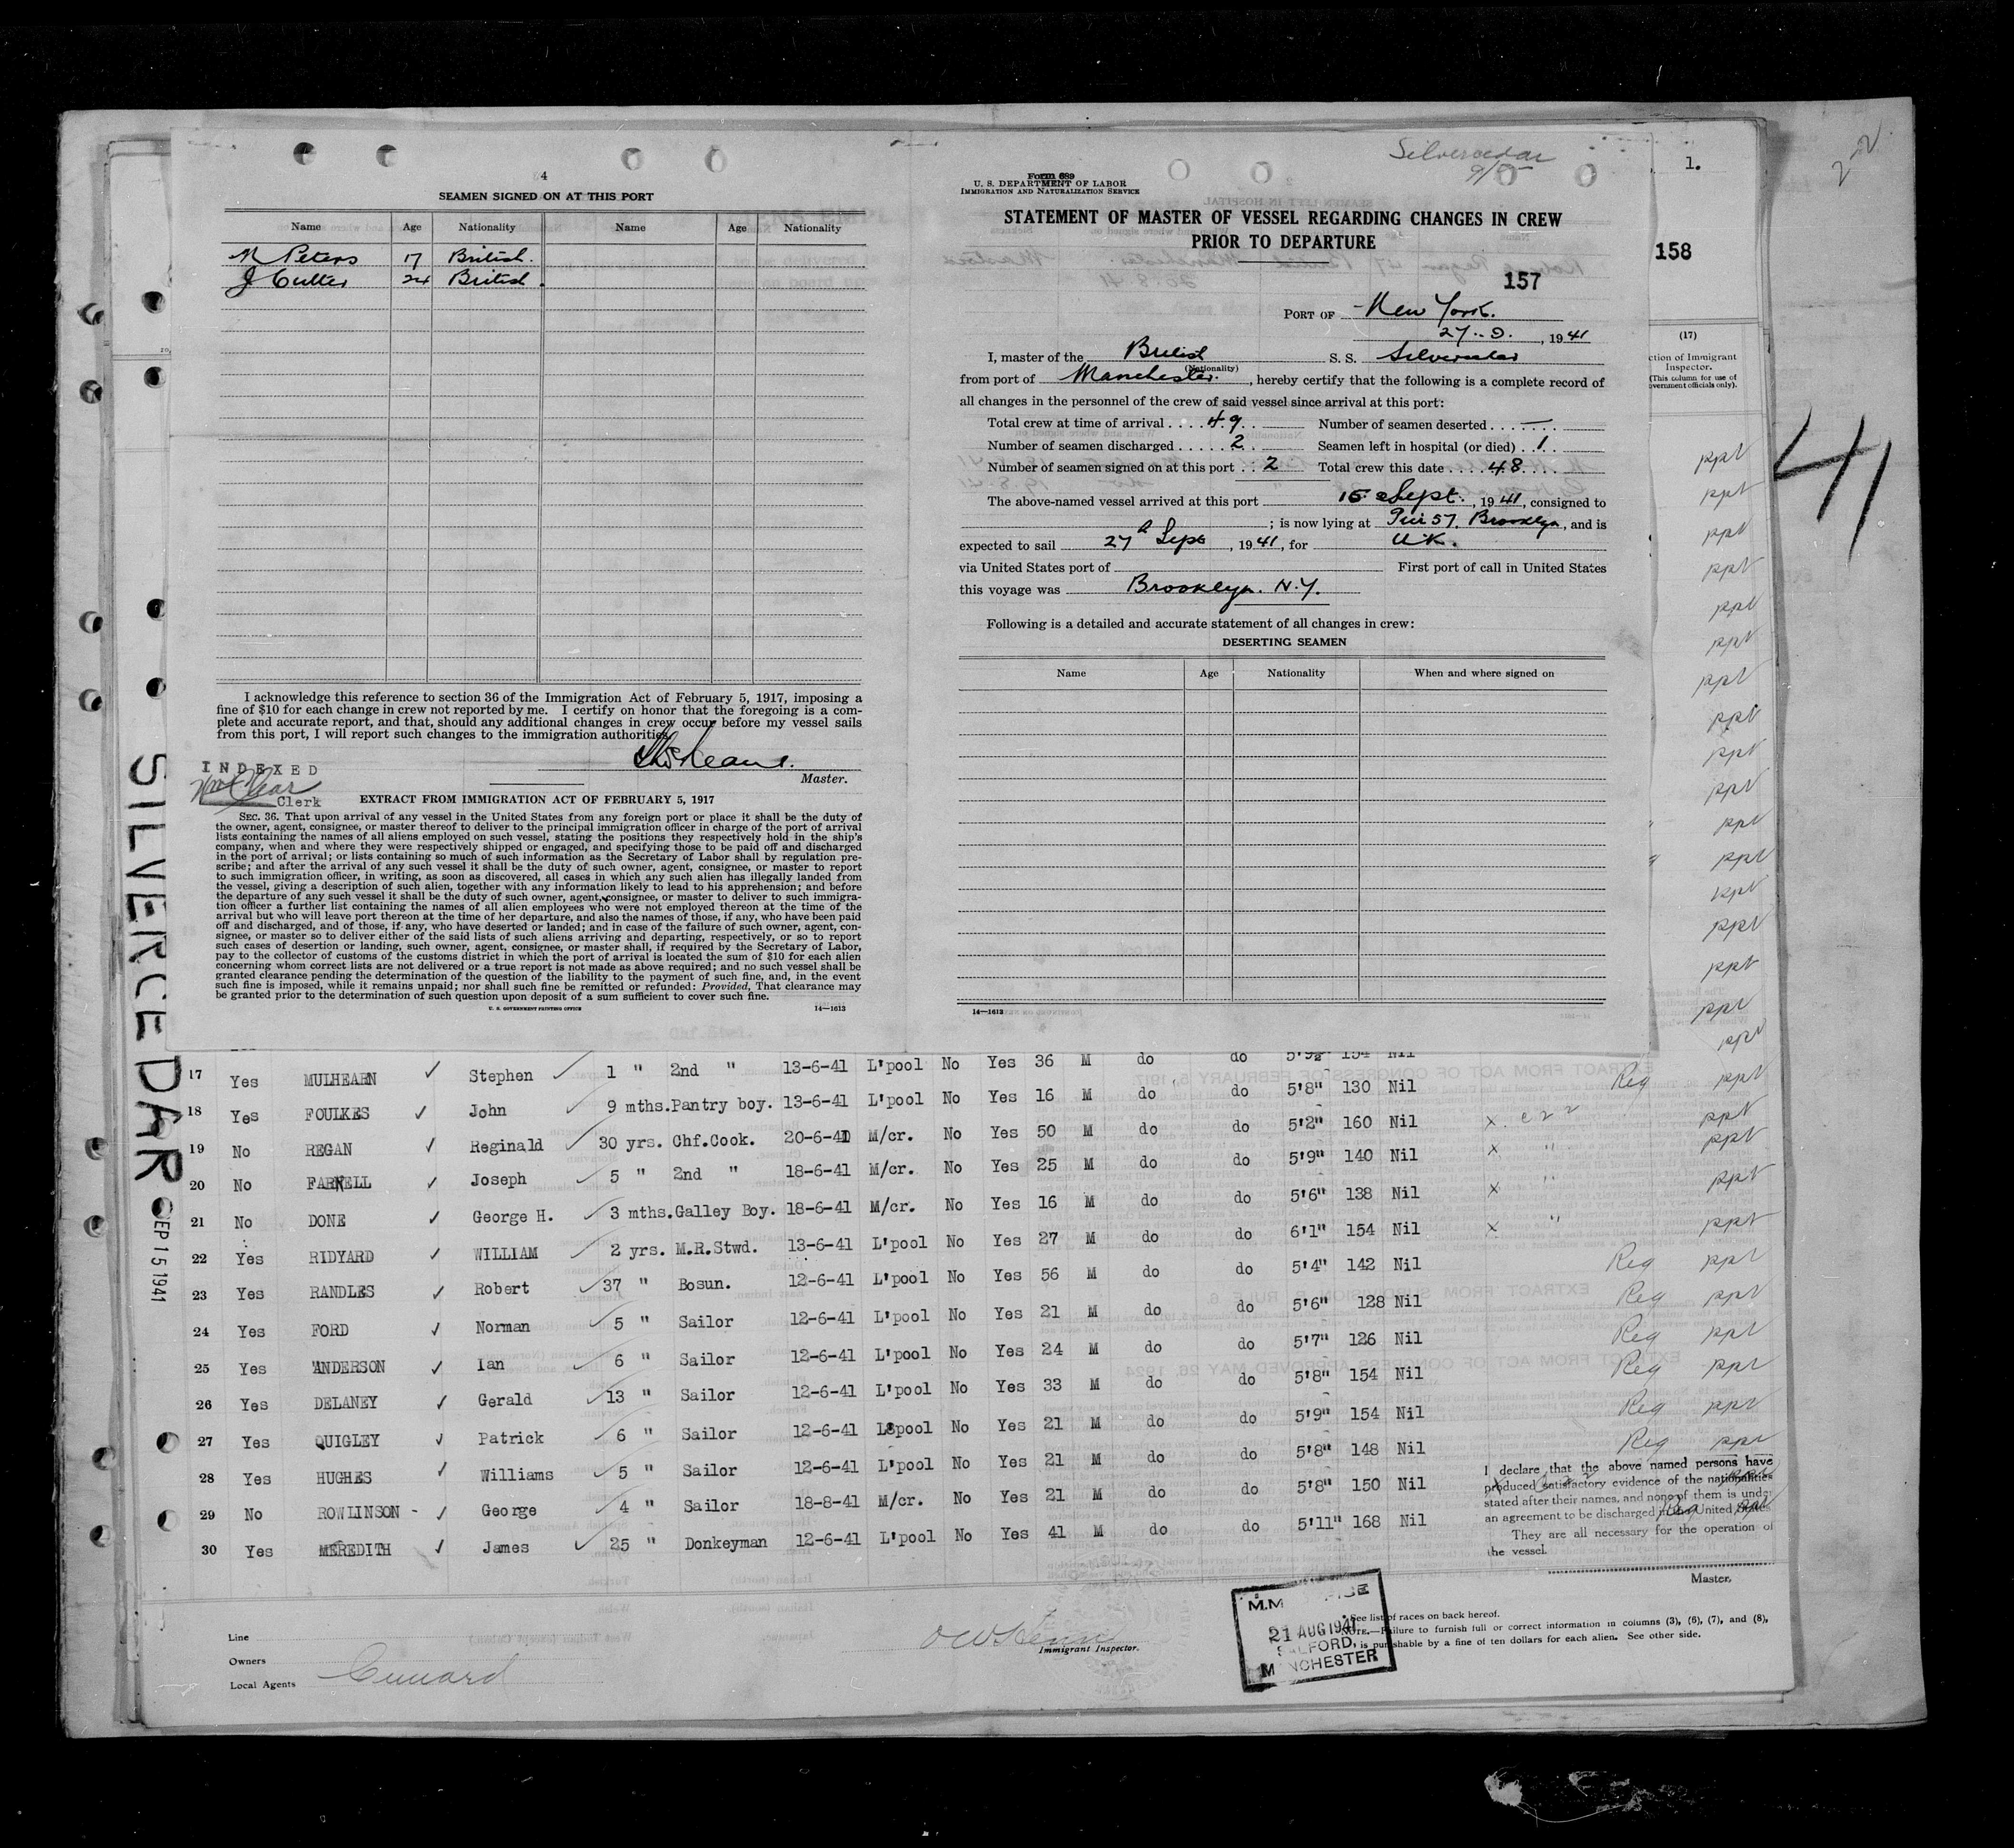 4
SEAMEN SIGNED ON AT THIS PORT
Name Age Nationality Name Age Nationality
N Peters 17 British.
J Cutter 24 British.
I acknowledge this reference to section 36 of the Immigration Act of February 5, 1917, imposing a
fine of $10 for each change in crew not reported by me. I certify on honor that the foregoing is a com-
plete and accurate report, and that, should any additional changes in crew occur before my vessel sails
from this port, I will report such changes to the immigration authorities.
Master.
INDEXED
Clerk
EXTRACT FROM IMMIGRATION ACT OF FEBRUARY 5, 1917
SEC. 36. That upon arrival of any vessel in the United States from any foreign port or place it shall be the duty of
the owner, agent, consignee, or master thereof to deliver to the principal immigration officer in charge of the port of arrival
lists containing the names of all aliens employed on such vessel, stating the positions they respectively hold in the ship's
company, when and where they were respectively shipped or engaged, and specifying those to be paid off and discharged
in the port of arrival; or lists containing so much of such information as the Secretary of Labor shall by regulation pre-
scribe; and after the arrival of any such vessel it shall be the duty of such owner, agent, consignee, or master to report
to such immigration officer, in writing, as soon as discovered, all cases in which any such alien has illegally landed from
the vessel, giving a description of such alien, together with any information likely to lead to his apprehension; and before
the departure of any such vessel it shall be the duty of such owner, agent, consignee, or master to deliver to such immigra-
tion officer a further list containing the names of all alien employees who were not employed thereon at the time of the
arrival but who will leave port thereon at the time of her departure, and also the names of those, if any, who have been paid
off and discharged, and of those, if any, who have deserted or landed; and in case of the failure of such owner, agent, con-
signee, or master so to deliver either of the said lists of such aliens arriving and departing, respectively, or so to report
such cases of desertion or landing, such owner, agent, consignee, or master shall, if required by the Secretary of Labor,
pay to the collector of customs of the customs district in which the port of arrival is located the sum of $10 for each alien
concerning whom correct lists are not delivered or a true report is not made as above required; and no such vessel shall be
granted clearance pending the determination of the question of the liability to the payment of such fine, and, in the event
such fine is imposed, while it remains unpaid; nor shall such fine be remitted or refunded: Provided, That clearance may
be granted prior to the determination of such question upon deposit of a sum sufficient to cover such fine.
U. S. GOVERNMENT PRINTING OFFICE 14—1613
Silvercedar
Form 689
U. S. DEPARTMENT OF LABOR
IMMIGRATION AND NATURALIZATION SERVICE
STATEMENT OF MASTER OF VESSEL REGARDING CHANGES IN CREW
PRIOR TO DEPARTURE
157
PORT OF New York.
27..9., 1941
I, master of the British S. S. Silvercedar
(Nationality)
from port of Manchester., hereby certify that the following is a complete record of
all changes in the personnel of the crew of said vessel since arrival at this port:
Total crew at time of arrival .... 49. Number of seamen deserted .... —
Number of seamen discharged ..... 2. Seamen left in hospital (or died) . 1.
Number of seamen signed on at this port .. 2 Total crew this date .... 48.
The above-named vessel arrived at this port 15 Sept., 1941, consigned to
; is now lying at Pier 57, Brooklyn, and is
expected to sail 27th Sept, 1941, for U.K.
via United States port of First port of call in United States
this voyage was Brooklyn. N.Y.
Following is a detailed and accurate statement of all changes in crew:
DESERTING SEAMEN
Name Age Nationality When and where signed on
14—1613
1.
158
(17)
ction of Immigrant
Inspector.
(This column for use of
overnment officials only).
41
SILVERCEDAR
SEP 15 1941
36 M do do 5'9½" 154 Nil
17 Yes MULHEARN Stephen 1 " 2nd " 13-6-41 L'pool No Yes 36 M do do 5'8" 130 Nil Reg ppt
18 Yes FOULKES John 9 mths. Pantry boy. 13-6-41 L'pool No Yes 16 M do do 5'2" 160 Nil ppt
19 No REGAN Reginald 30 yrs. Chf.Cook. 20-6-41 M/cr. No Yes 50 M do do 5'9" 140 Nil x " ppt
20 No FARRELL Joseph 5 " 2nd " 18-6-41 M/cr. No Yes 25 M do do 5'6" 138 Nil x " ppt
21 No DONE George H. 3 mths. Galley Boy. 18-6-41 M/cr. No Yes 16 M do do 6'1" 154 Nil x " ppt
22 Yes RIDYARD WILLIAM 2 yrs. M.R.Stwd. 13-6-41 L'pool No Yes 27 M do do 5'4" 142 Nil Reg ppt
23 Yes RANDLES Robert 37 " Bosun. 12-6-41 L'pool No Yes 56 M do do 5'6" 128 Nil Reg ppt
24 Yes FORD Norman 5 " Sailor 12-6-41 L'pool No Yes 21 M do do 5'7" 126 Nil Reg ppt
25 Yes ANDERSON Ian 6 " Sailor 12-6-41 L'pool No Yes 24 M do do 5'8" 154 Nil Reg ppt
26 Yes DELANEY Gerald 13 " Sailor 12-6-41 L'pool No Yes 33 M do do 5'9" 154 Nil Reg ppt
27 Yes QUIGLEY Patrick 6 " Sailor 12-6-41 L'pool No Yes 21 M do do 5'8" 148 Nil Reg ppt
28 Yes HUGHES Williams 5 " Sailor 12-6-41 L'pool No Yes 21 M do do 5'8" 150 Nil
29 No ROWLINSON - George 4 " Sailor 18-8-41 M/cr. No Yes 21 M do do 5'11" 168 Nil
30 Yes MEREDITH James 25 " Donkeyman 12-6-41 L'pool No Yes 41 M do do
I declare that the above named persons have
produced satisfactory evidence of the nationalities
stated after their names, and none of them is under
an agreement to be discharged in the United States
They are all necessary for the operation of
the vessel.
Master.
Line
Owners
Local Agents Cunard
Immigrant Inspector.
M.M
21 AUG 1941
SALFORD,
MANCHESTER
See list of races on back hereof.
NOTE.—Failure to furnish full or correct information in columns (3), (6), (7), and (8),
is punishable by a fine of ten dollars for each alien. See other side.